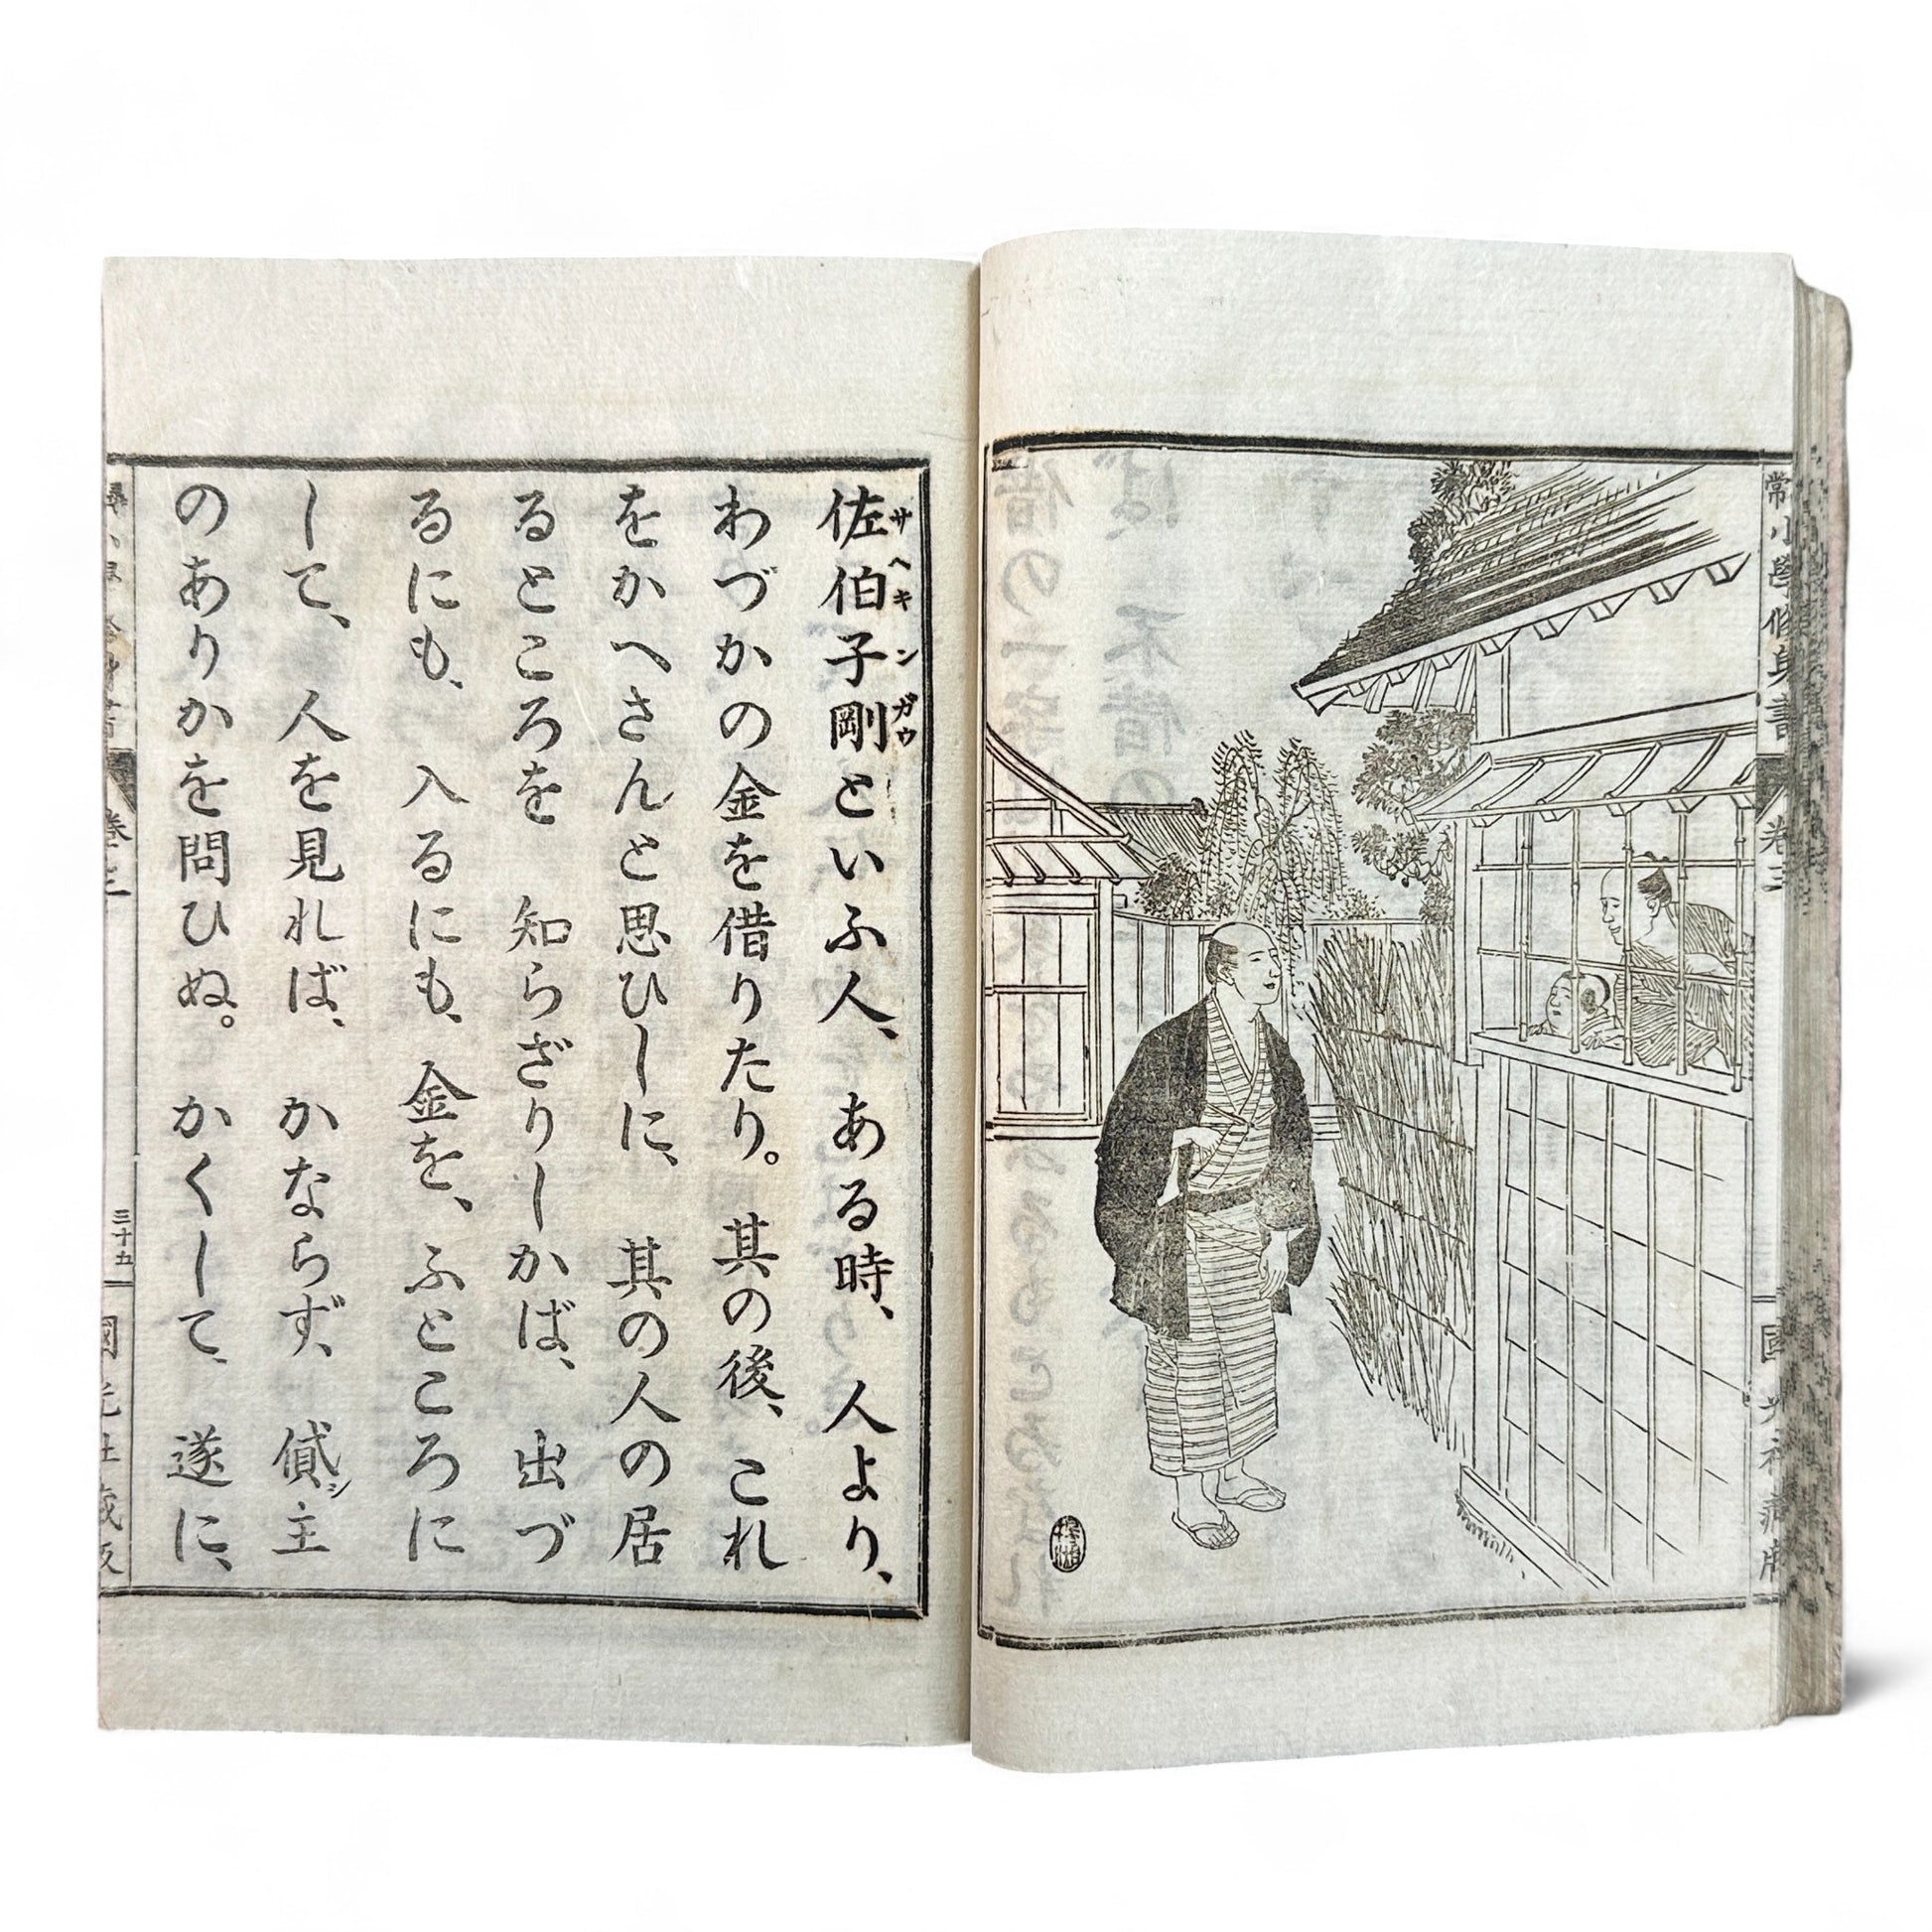 常小學修身書 卷三
佐伯子剛といふ人、ある時、人より、
サヘキ ンガウ
わづかの金を借りたり。其の後、これ
をかへさんと思ひしに、其の人の居
るところを知らざりしかば、出づ
るにも、入るにも、金を、ふところに
して、人を見れば、かならず、貸主
シ
のありかを問ひぬ。かくして、遂に、
卷三
三十五